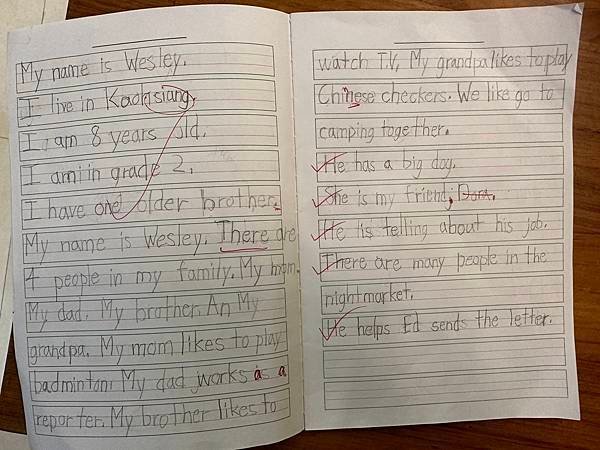 My name is Wesley.
I live in Kaohsiang.
I am 8 years old.
I am in grade 2.
I have one older brother.
My name is Wesley. There are
4 people in my family. My mom.
My dad. My brother. An My
grandpa. My mom likes to play
badminton. My dad works as a
reporter. My brother likes to
watch T.V. My grandpa likes to play
Chinese checkers. We like go to
camping together.
He has a big dog.
She is my friend, Dora.
He is telling about his job.
There are many people in the
nightmarket.
He helps Ed sends the letter.